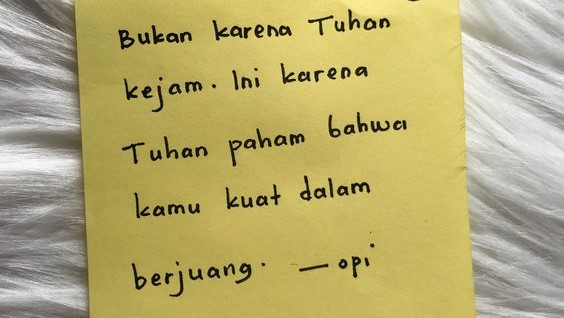 Bukan karena Tuhan
kejam. Ini karena
Tuhan paham bahwa
kamu kuat dalam
berjuang. — opi